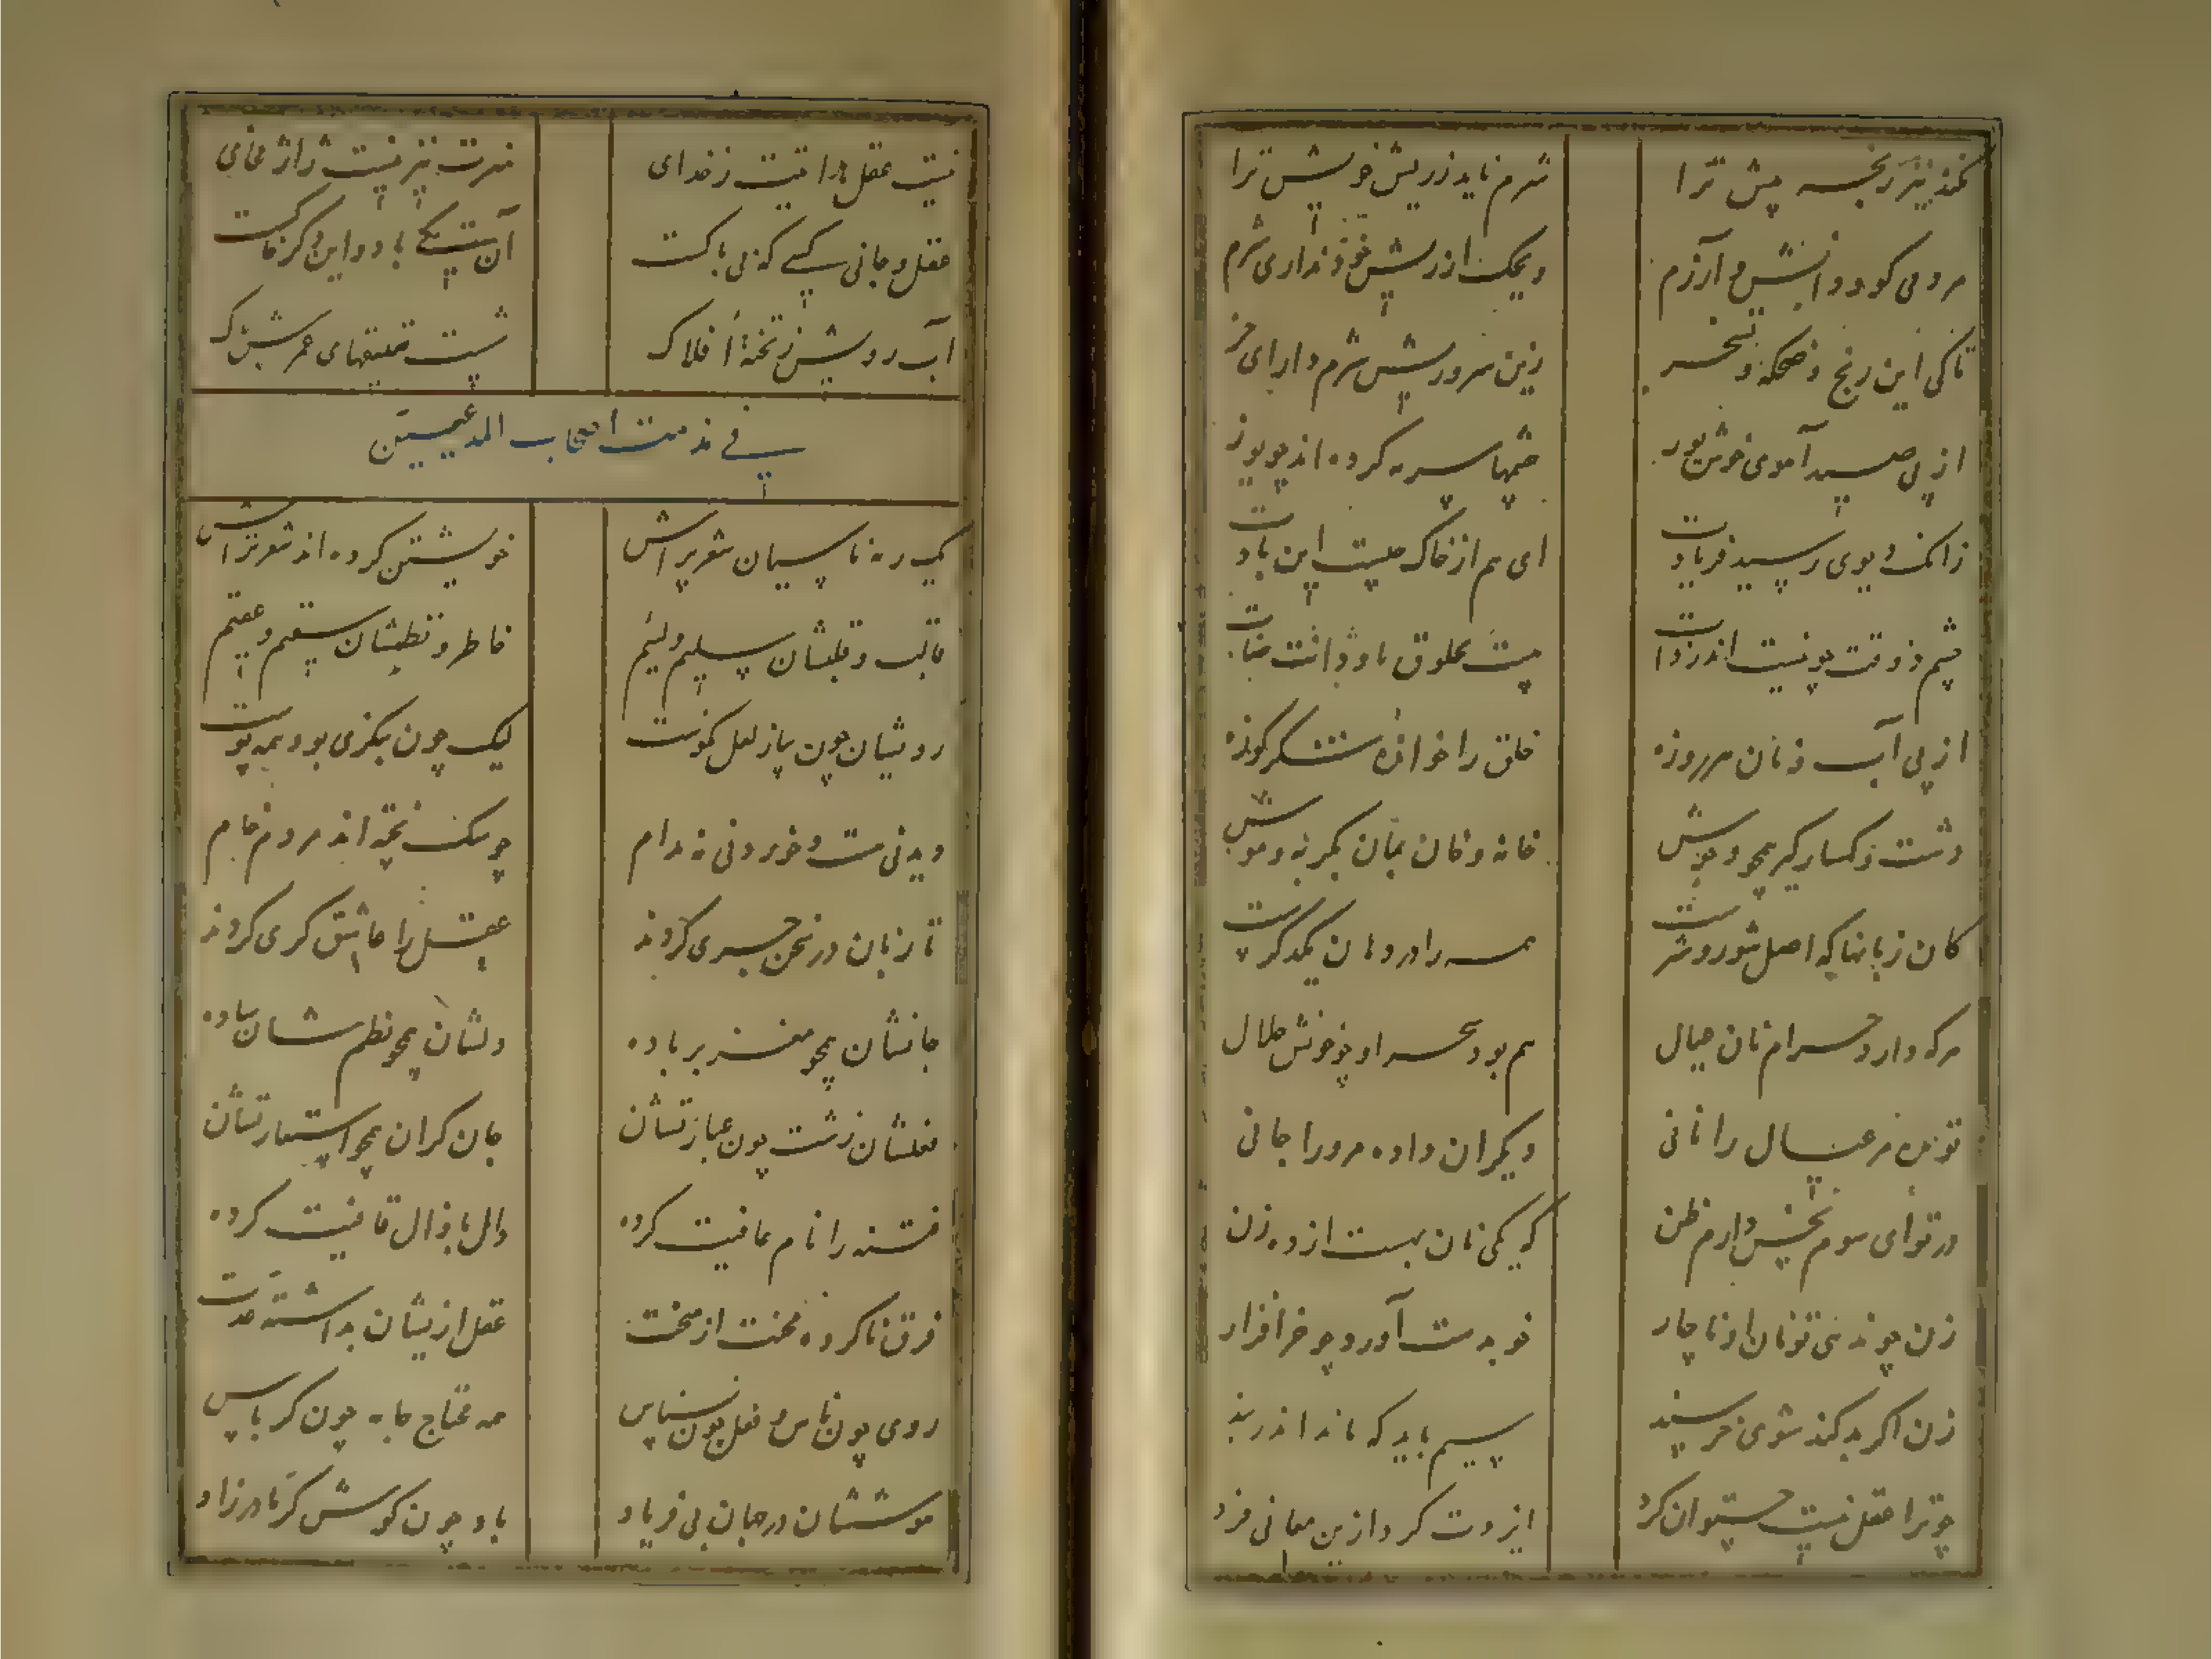 کند تیز رنجه پیش ترا شرم ناید ز ریش خویش ترا
مردمی کو و دانش و آزرم ویحک از ریش خود نداری شرم
تا کی این رنج و ضحکه و تسخر زین سر و ریش شرم دار ای خر
از پی صید آهوی خوش پوز چشمها سرمه کرده اند چو یوز
زانک بوی رسید فریادت ای هم از خاک چیست این بادت
چشم ذوقت چو نیست اندر ذات چیست مخلوق باد و انت
از پی آب و نان هرروزه خلق را خوانده
دشت و کهسار گیر همچو وحوش خانه و مان بمان بگربه و موش
کان زبانها که اصل شور و شرست همه را در دهان یکدگرست
هرکه دارد حرام نان عیال هم بود سحر او چو خونش حلال
تو مده مر عیال را نانی دیگران داده مر ورا جانی
در تو ای شوم نحس دارم ظن که یکی نان بهست از ده زن
زن چو ندهی تو نان او ناچار خود بدست آورد چو خر افزار
زن اگر بد کند شوی خرسند سیم باید که ماند اندر بند
چو ترا عقل نیست چتوان کرد ایزدت کرد ازین معانی فرد
نیست عقل ترا تمیت ز خدای نیز نیست ژاژ مخای
عقل و جانی کسی که نی پاکست آن یکی باد و این دگر خاکست
آب رویش ز تخته افلاک شست تعلیقهای عرش
فی مذمت اصحاب المدعیین
یک رمه ناسپاسیان شعرپراش خویشتن کرده اند شعرتراش
قالب و قلبشان سلیم و لئیم خاطر و نظمشان سقیم و عقیم
رویشان چون پیاز لعل نکوست لیک چون بنگری بود همه پوست
دیدنی هست و خوردنی نه مدام چو سگ پخته اند مردم خام
تا زبان در سخن جری کردند عقل را عاشق کری کردند
جانشان همچو مغز پر باده دلشان همچو نظمشان ساده
فعلشان زشت چون عبارتشان جان گران همچو استعارتشان
فتنه را نام عافیت کرده دال با ذال قافیت کرده
فرق ناکرده محنت از منحت عقل ازیشان بداشته عدت
روی چون ناس و فعل چون نسناس همه محتاج جامه چون کرباس
هوششان در جهان بی فریاد باد چون گوش کر مادرزاد